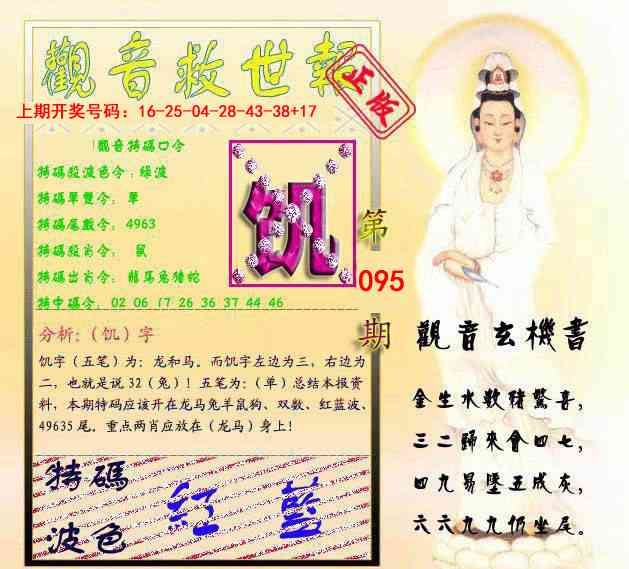 觀音救世報
正版
上期开奖号码：16-25-04-28-43-38+17
觀音特碼口令
特碼殺波色令：綠波
特碼單雙令：單
特碼尾數令：4963
特碼殺肖令：鼠
特碼出肖令：龍馬兔豬蛇
特中碼令：02 06 17 26 36 37 44 46
饥
第
095
期
分析：（饥）字
饥字（五笔）为：龙和马。而饥字左边为三，右边为
二，也就是说 32（兔）！五笔为：（单）总结本报资
料，本期特码应该开在龙马兔羊鼠狗、双数、红蓝波、
49635 尾。重点两肖应放在（龙马）身上！
特碼
波色
红 蓝
觀音玄機書
金生水數豬驚喜，
三二歸來會四七，
四九易墜五成灰，
六六九九仍坐尾。